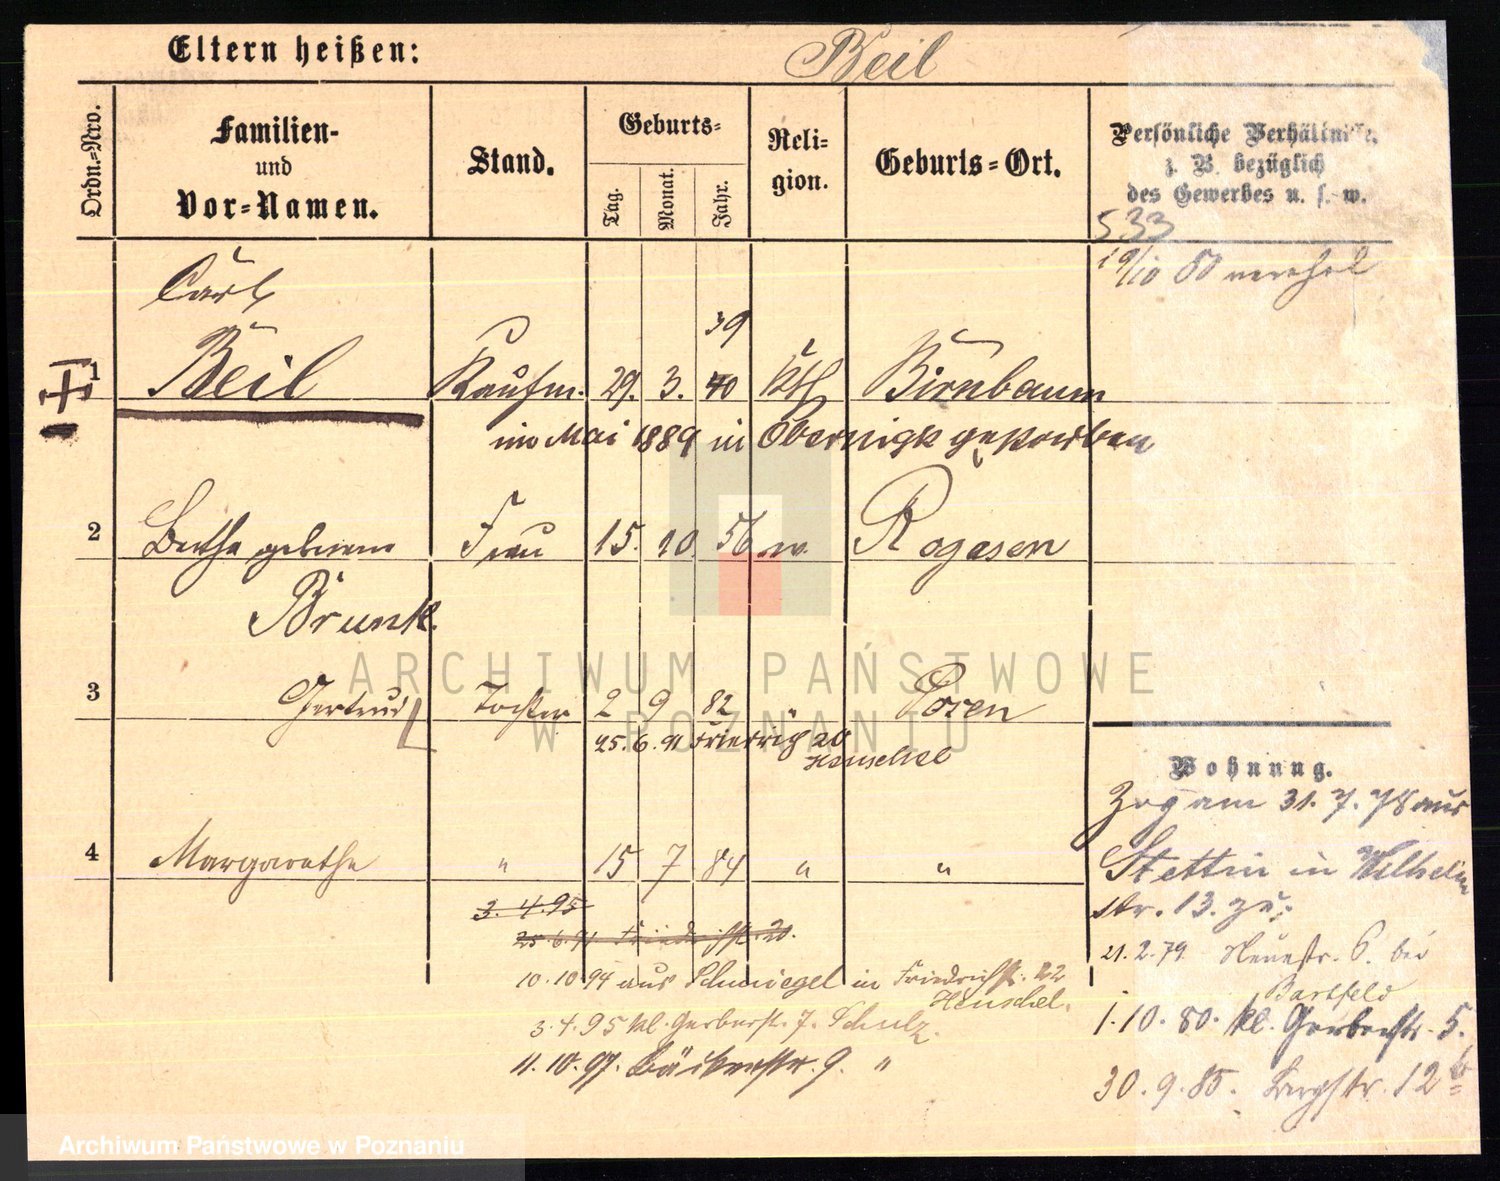 Eltern heißen:
Beil
Ordn.=Nro.
Familien-
und
Vor=Namen.
Stand.
Geburts=
Tag.
Monat.
Jahr.
Reli-
gion.
Geburts=Ort.
Persönliche Verhältnisse,
z. B. bezüglich
des Gewerbes u. s. w.
533
19/10 80
Carl
39
1 Beil Kaufm. 29. 3. 40 kth Birnbaum
im Mai 1889 in Obernigk gestorben
2 Bertha geborene Frau 15. 10. 56 Rogasen
Brunk.
3 Gertrud Tochter 2 9 82 " Posen
25. 6. 91 Friedrich 20
Henschel
4 Margarethe " 15 7 84 " "
3. 4. 95
25. 6. 91 Friedrichstr. 20.
10. 10. 94 aus Schmiegel in Friedrichstr. 22
Henschel.
3. 4. 95 kl. Gerberstr. 7. Schulz.
11. 10. 97. Bäckerstr. 9. "
Wohnung.
Zog am 31. 7. 78 aus
Stettin in Wilhelm
str. 13. zu;
21. 2. 79. Neuestr. 6. bei
Bartfeld
1. 10. 80. kl. Gerberstr. 5.
30. 9. 85. Bergstr. 12 b
ARCHIWUM PAŃSTWOWE
W POZNANIU
Archiwum Państwowe w Poznaniu